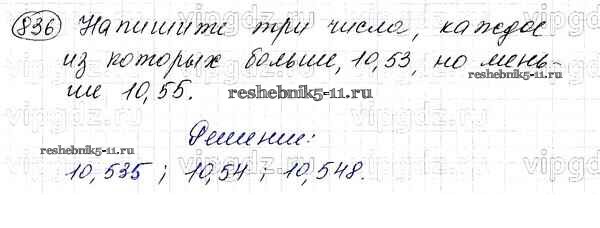 836 Напишите три числа, каждое
из которых больше, 10,53, но мень-
ше 10,55.
reshebnik5-11.ru
Решение:
reshebnik5-11.ru
10,535 ; 10,54 ; 10,548.